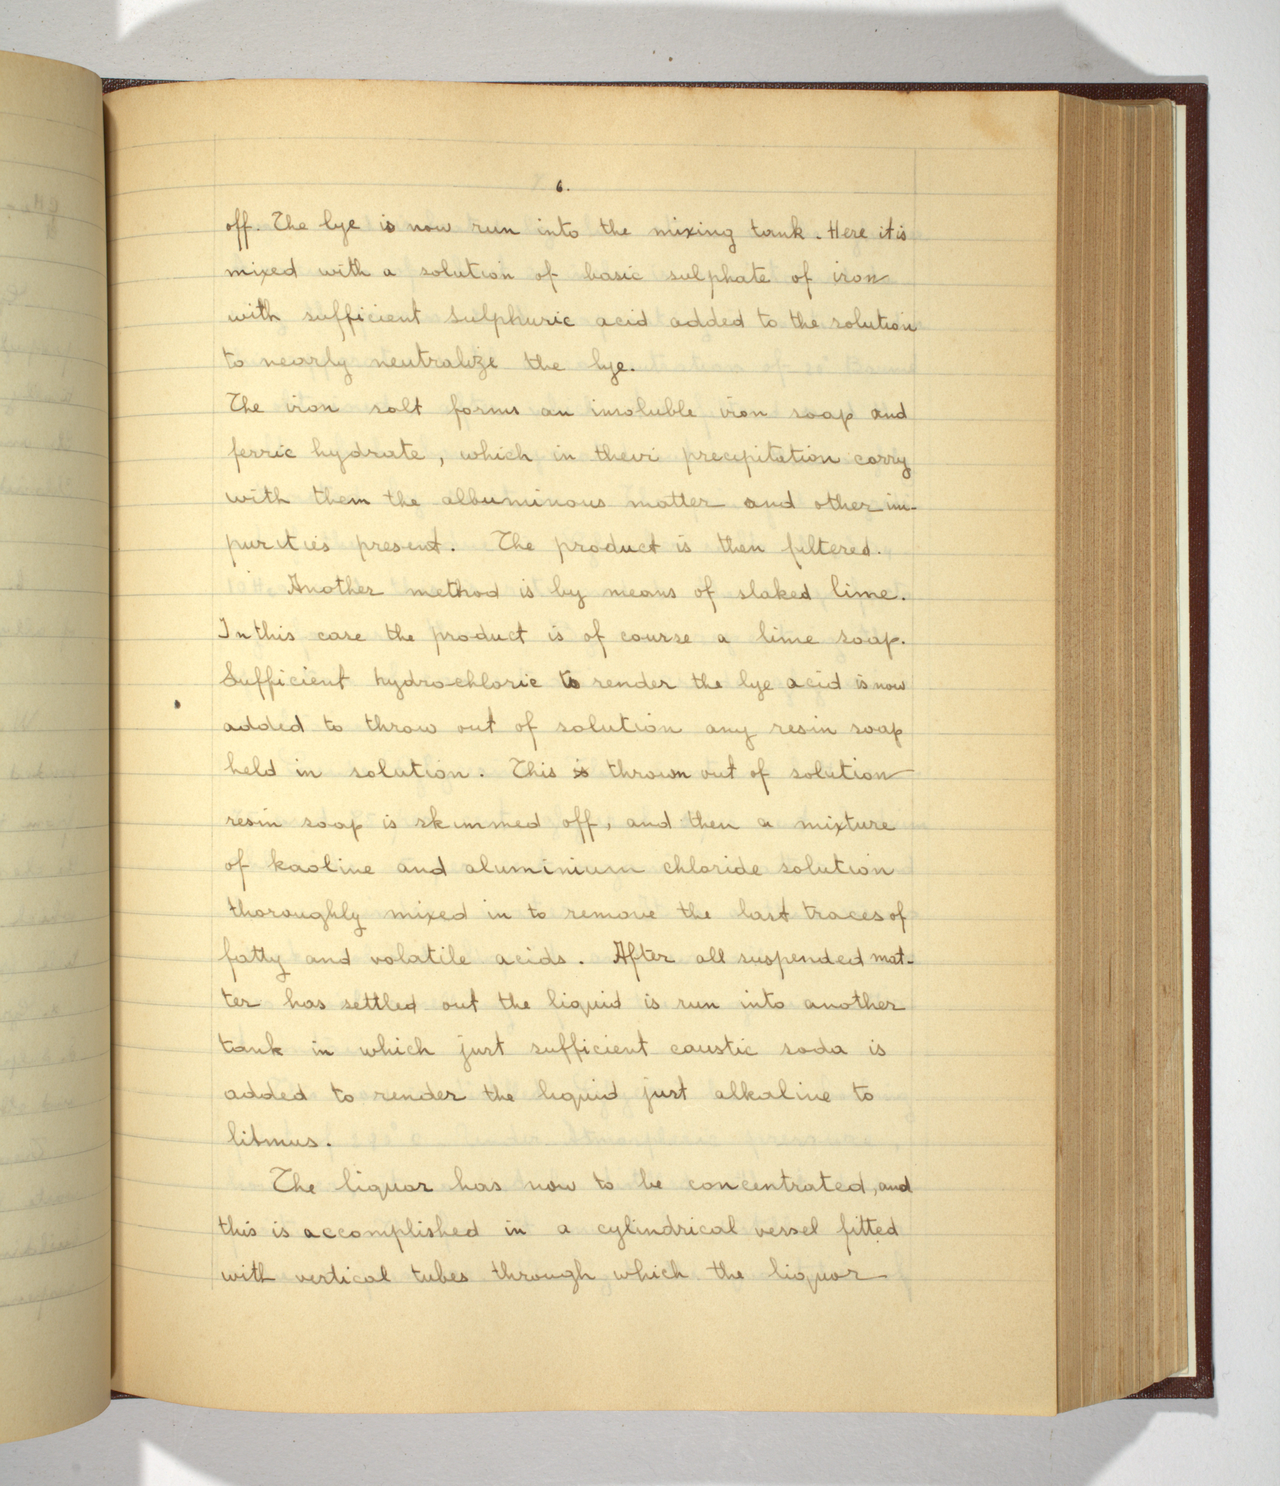 6.
off. The lye is now run into the mixing tank. Here it is
mixed with a solution of basic sulphate of iron
with sufficient sulphuric acid added to the solution
to nearly neutralize the lye.
The iron salt forms an insoluble iron soap and
ferric hydrate, which in their precipitation carry
with them the albuminous matter and other im-
purities present. The product is then filtered.
Another method is by means of slaked lime.
In this case the product is of course a lime soap.
Sufficient hydro-chloric to render the lye acid is now
added to throw out of solution any resin soap
held in solution. This is thrown out of solution
resin soap is skimmed off, and then a mixture
of kaoline and aluminium chloride solution
thoroughly mixed in to remove the last traces of
fatty and volatile acids. After all suspended mat-
ter has settled out the liquid is run into another
tank in which just sufficient caustic soda is
added to render the liquid just alkaline to
litmus.
The liquor has now to be concentrated, and
this is accomplished in a cylindrical vessel fitted
with vertical tubes through which the liquor